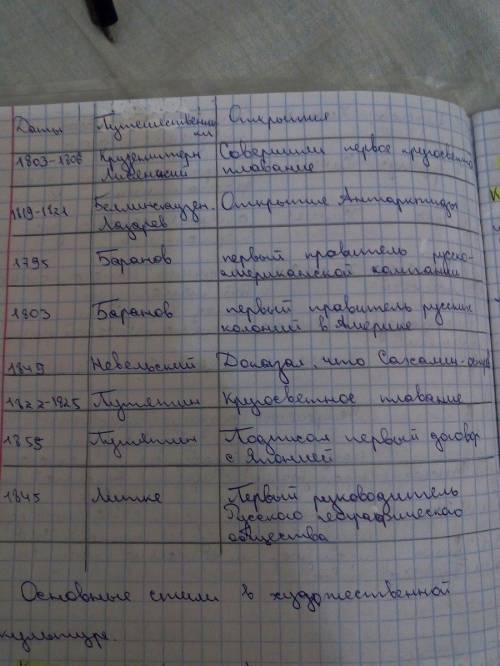 Даты Путешественни Открытия
ки
1803-1806 Крузенштерн Совершили первое кругосветно
Лисянский плавание
1819-1821 Беллинсгаузен. Открытие Антарктиды
Лазарев
1795 Баранов первый правитель русско-
американской компании
1803 Баранов первый правитель русских
колоний в Америке
1849 Невельский Доказал, что Сахалин-остров
1822-1825 Путятин Кругосветное плавание
1855 Путятин Подписал первый договор
с Японией
1845 Литке Первый руководитель
Русского географического
общества
Основные стили в художественной
культуре.